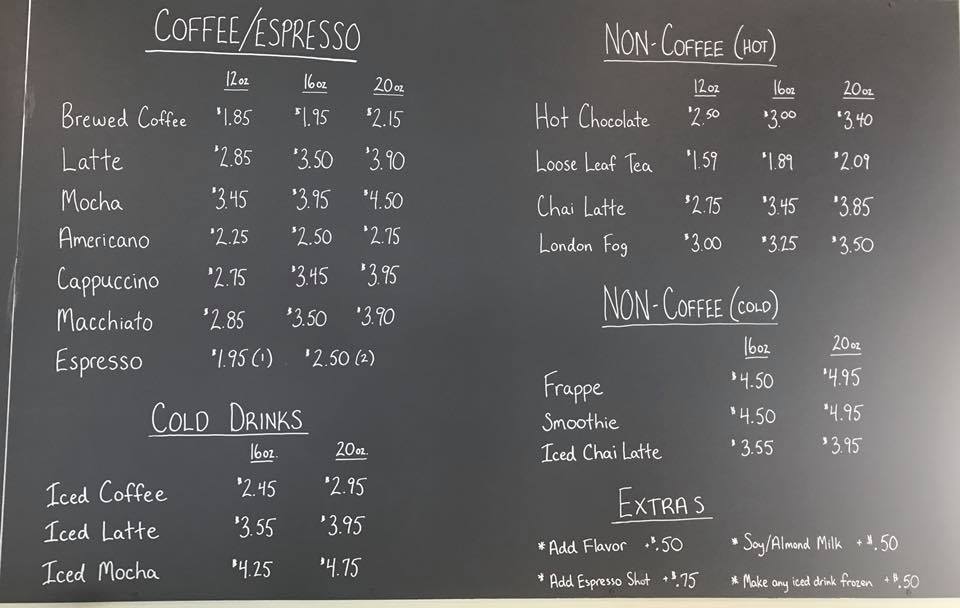 COFFEE/ESPRESSO
12oz 16oz 20oz
Brewed Coffee $1.85 $1.95 $2.15
Latte $2.85 $3.50 $3.90
Mocha $3.45 $3.95 $4.50
Americano $2.25 $2.50 $2.75
Cappuccino $2.75 $3.45 $3.95
Macchiato $2.85 $3.50 $3.90
Espresso $1.95 (1) $2.50 (2)
COLD DRINKS
16oz. 20oz.
Iced Coffee $2.45 $2.95
Iced Latte $3.55 $3.95
Iced Mocha $4.25 $4.75
NON-COFFEE (HOT)
12oz 16oz 20oz
Hot Chocolate $2.50 $3.00 $3.40
Loose Leaf Tea $1.59 $1.89 $2.09
Chai Latte $2.75 $3.45 $3.85
London Fog $3.00 $3.25 $3.50
NON-COFFEE (COLD)
16oz 20oz
Frappe $4.50 $4.95
Smoothie $4.50 $4.95
Iced Chai Latte $3.55 $3.95
EXTRAS
* Add Flavor +$.50 * Soy/Almond Milk +$.50
* Add Espresso Shot +$.75 * Make any iced drink frozen +$.50